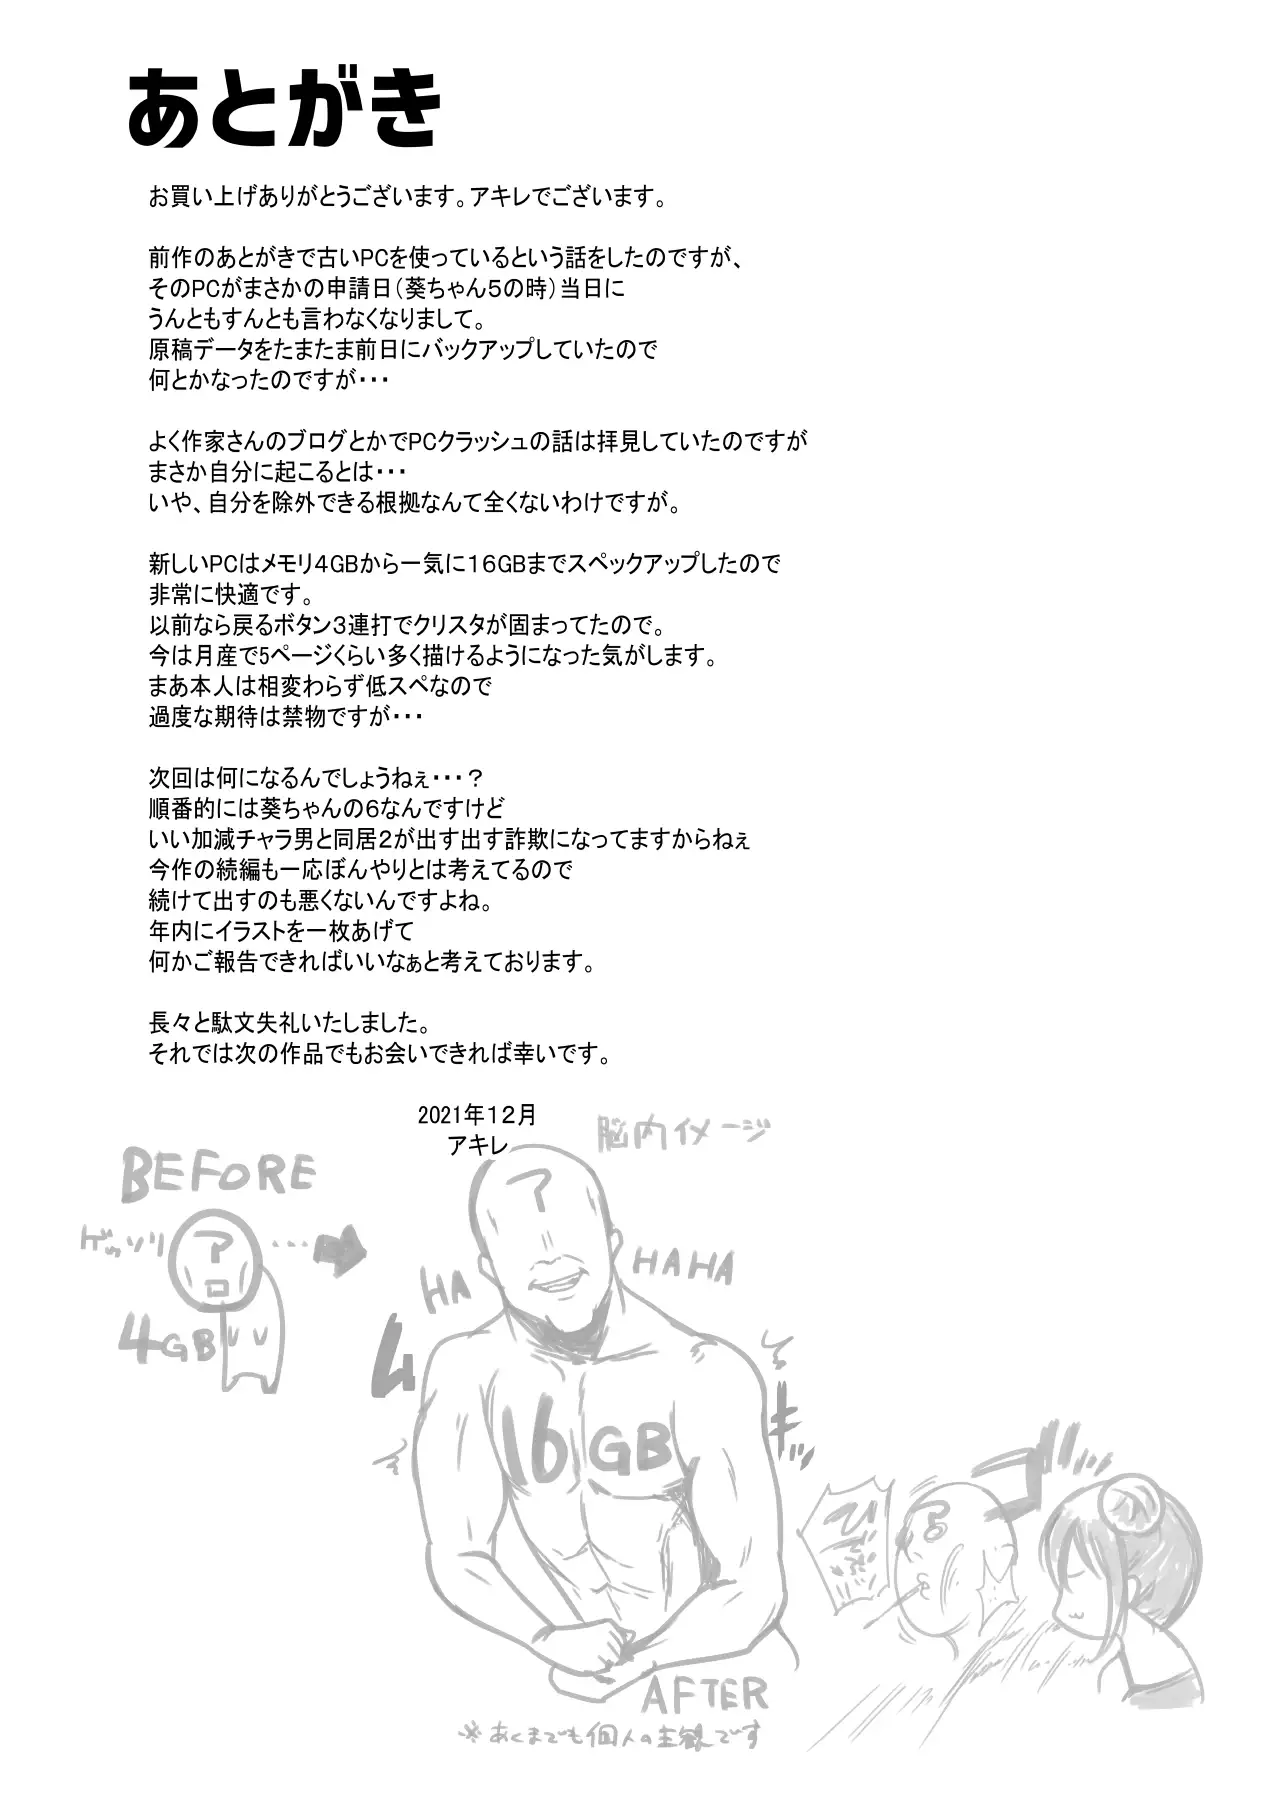 あとがき
お買い上げありがとうございます。アキレでございます。
前作のあとがきで古いPCを使っているという話をしたのですが、
そのPCがまさかの申請日(葵ちゃん5の時)当日に
うんともすんとも言わなくなりまして。
原稿データをたまたま前日にバックアップしていたので
何とかなったのですが・・・
よく作家さんのブログとかでPCクラッシュの話は拝見していたのですが
まさか自分に起こるとは・・・
いや、自分を除外できる根拠なんて全くないわけですが。
新しいPCはメモリ4GBから一気に16GBまでスペックアップしたので
非常に快適です。
以前なら戻るボタン3連打でクリスタが固まってたので。
今は月産で5ページくらい多く描けるようになった気がします。
まあ本人は相変わらず低スペなので
過度な期待は禁物ですが・・・
次回は何になるんでしょうねぇ・・・?
順番的には葵ちゃんの6なんですけど
いい加減チャラ男と同居2が出す出す詐欺になってますからねぇ
今作の続編も一応ぼんやりとは考えてるので
続けて出すのも悪くないんですよね。
年内にイラストを一枚あげて
何かご報告できればいいなぁと考えております。
長々と駄文失礼いたしました。
それでは次の作品でもお会いできれば幸いです。
2021年12月
アキレ
脳内イメージ
BEFORE
ゲッソリ
ア
・・・
4GB
ア
HA
HAHA
ム
キッ
16GB
ゴ
ア
AFTER
※あくまでも個人の主観です